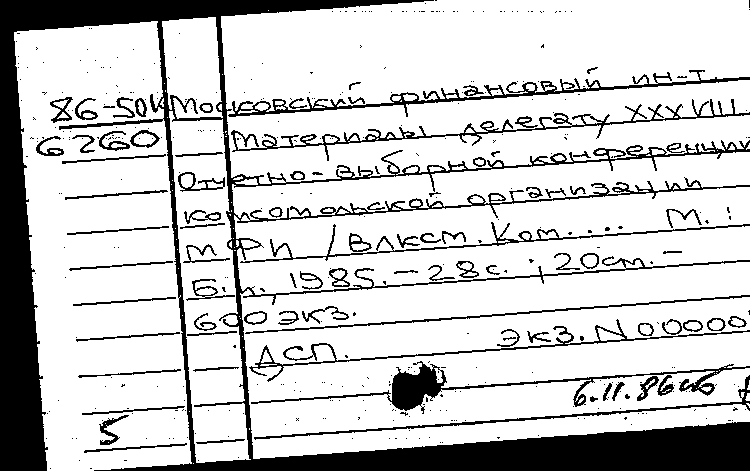 86-50К Московский финансовый ин-т.
6260 Материалы делегату XXXVIII
Отчетно-выборной конференции
комсомольской организации
МФИ / ВЛКСМ. Ком.... М. :
Б.и., 1985. - 28 с. ; 20 см. -
600 экз.
ДСП. Экз. N 00000
6.11.86
5